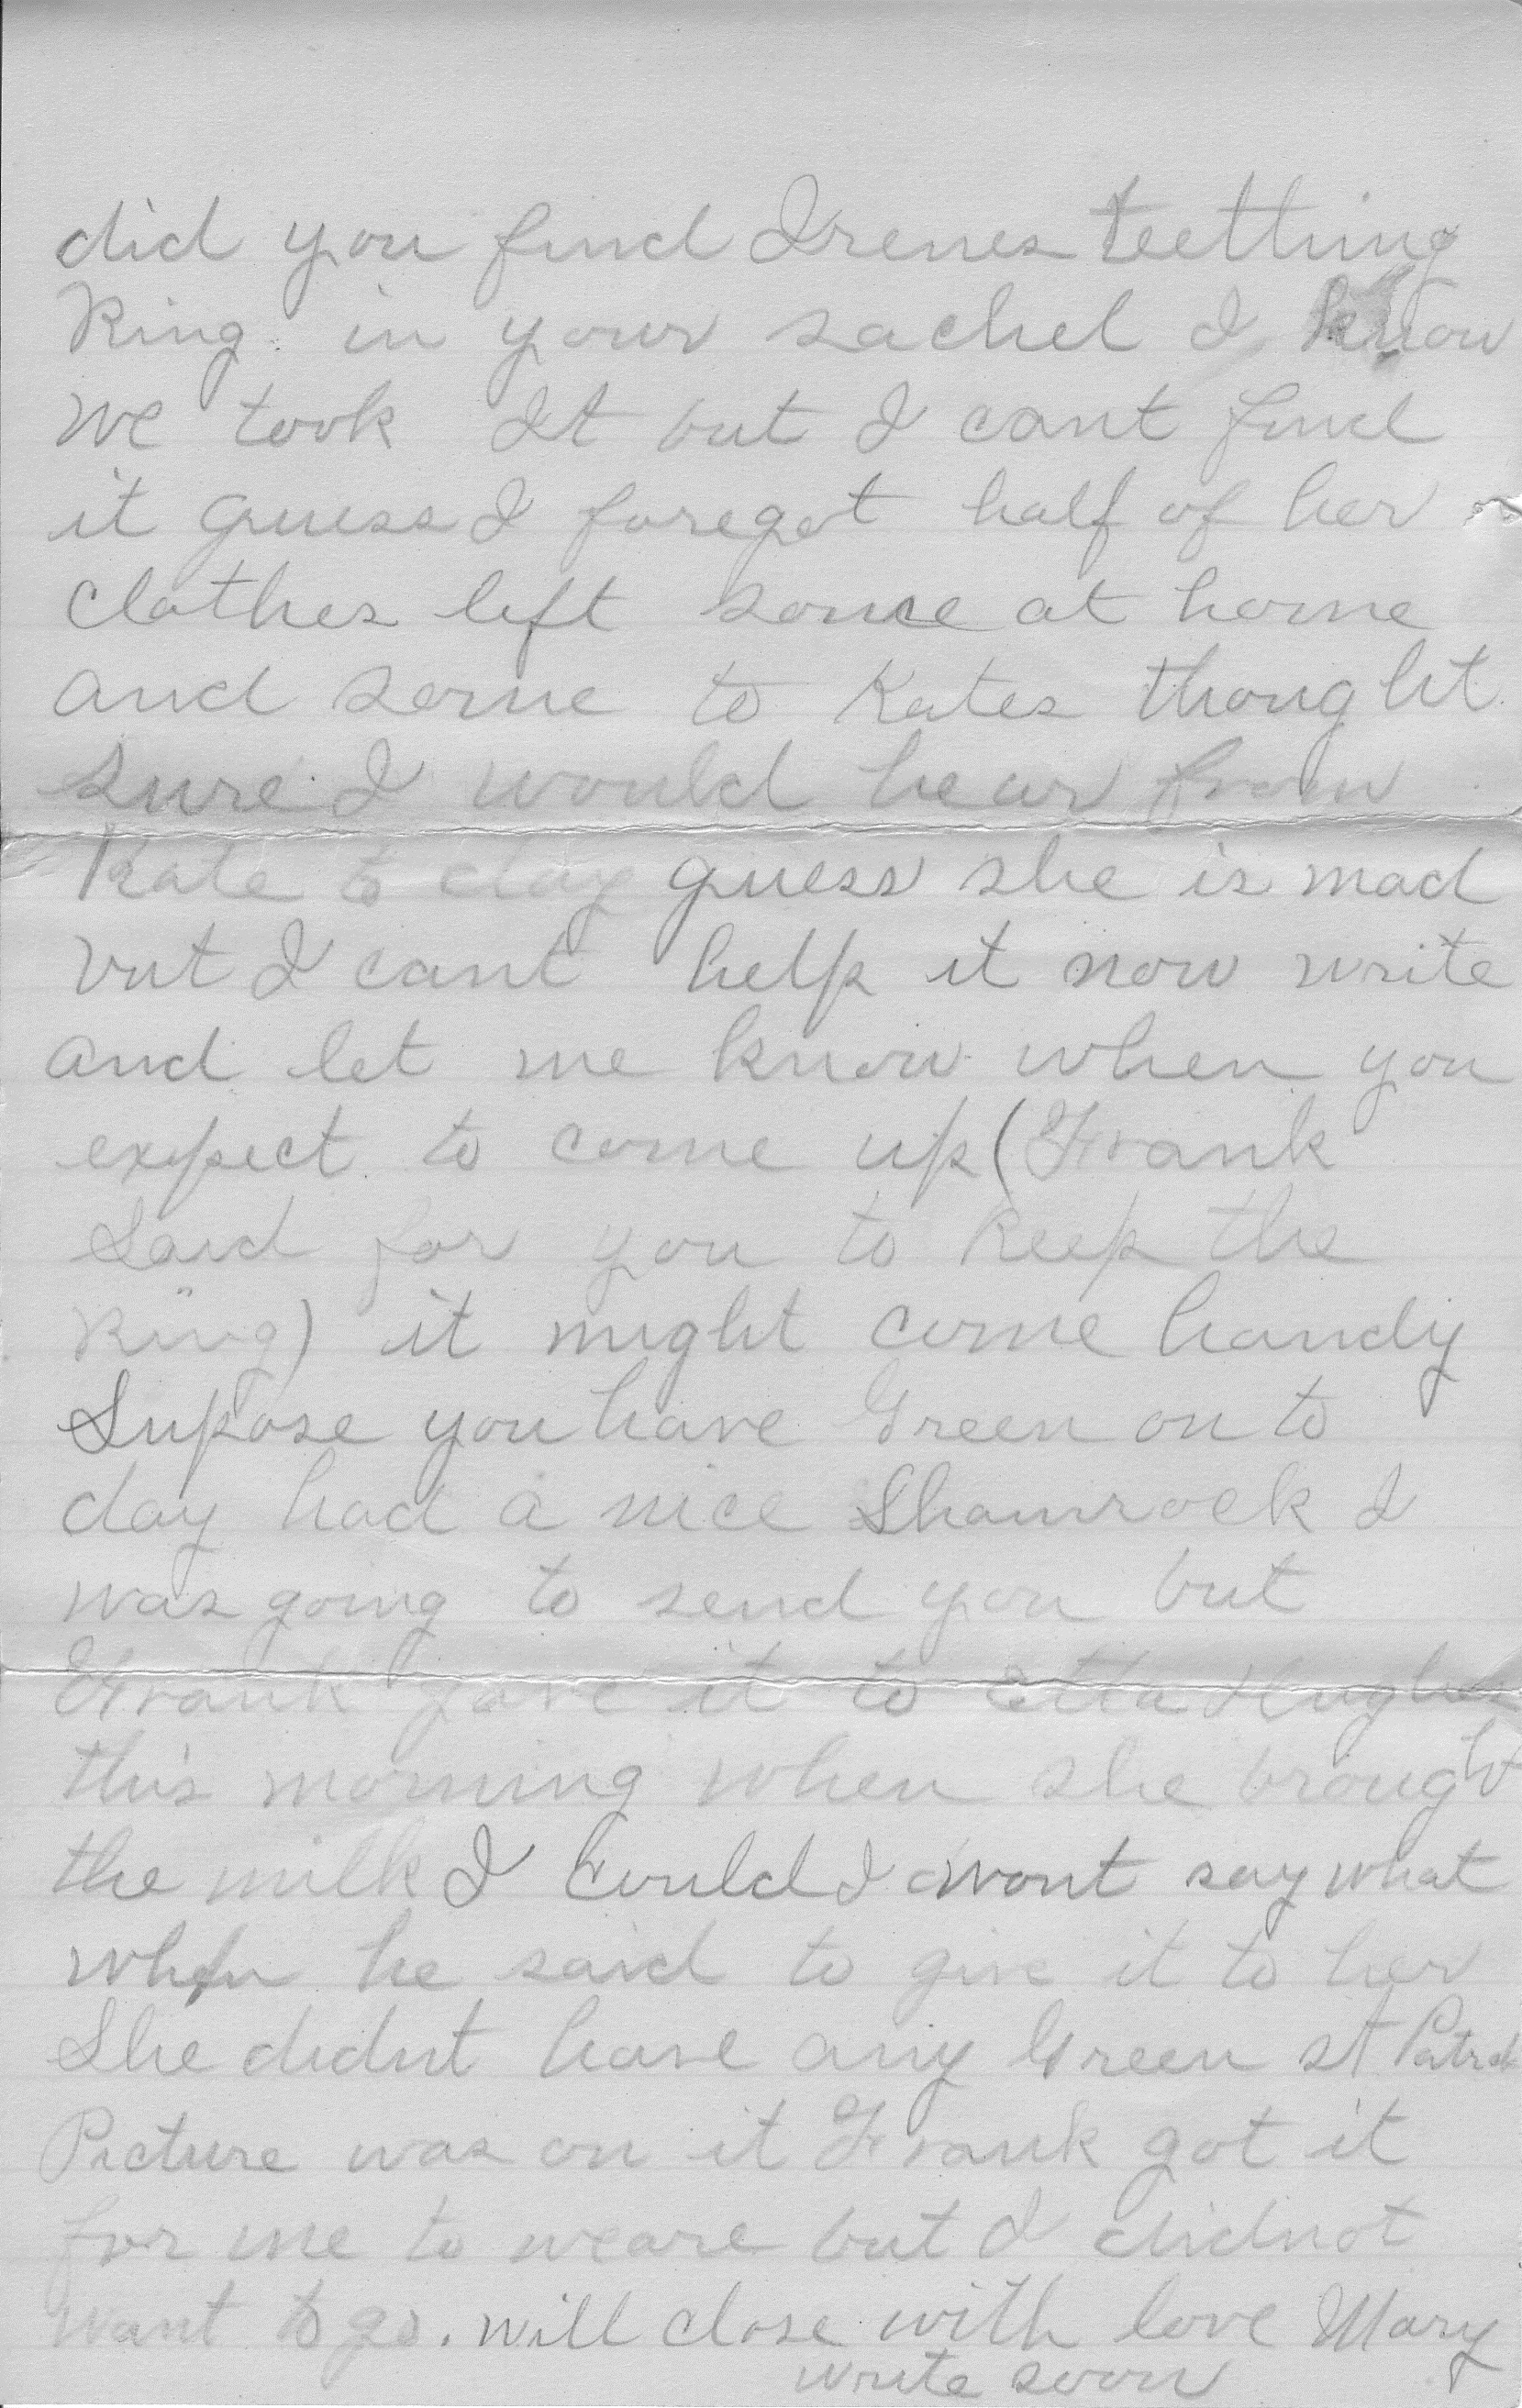 did you find Irenes teething
Ring in your sachel I know
we took It but I cant find
it guess I foregot half of her
clothes left some at home
and some to Kates thought
sure I would hear from
Kate to day guess she is mad
but I cant help it now write
and let me know when you
expect to come up (Frank
Said for you to Keep the
Ring) it might come handy
Supose you have Green on to
day had a nice Shamrock I
was going to send you but
Frank gave it to Etta Hughes
this morning when she brought
the milk I could I wont say what
when he said to give it to her
She didnt have any Green st Patrick
Picture was on it Frank got it
for me to weare but I didnot
want to go. will close with love Mary
write soon